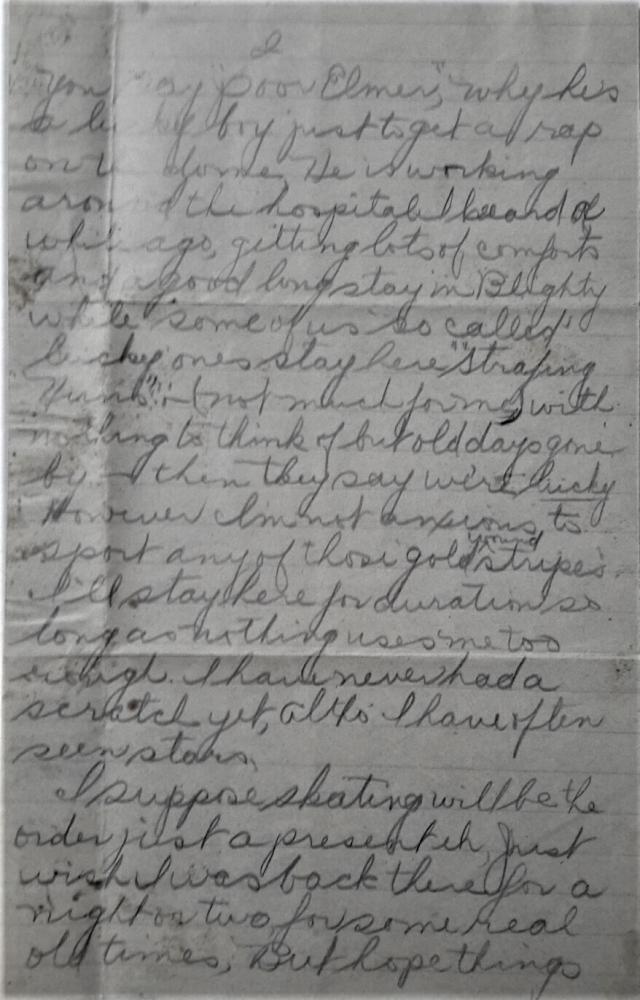 2
You say "Poor Elmer", why he's
a lucky boy just to get a rap
on the dome. He is working
around the hospital I heard a
while ago, getting lots of comforts
and a good long stay in Blighty
while some of us so called
lucky ones stay here "Strafing
Huns" :- (not much for me) with
nothing to think of but old days gone
by - then they say we're lucky
However I'm not anxious to
sport any of those gold wound stripes.
I'll stay here for duration so
long as nothing uses me too
rough. I have never had a
scratch yet, altho I have often
seen stars.
I suppose skating will be the
order just a present eh, Just
wish I was back there for a
night or two for some real
old times, But hope things